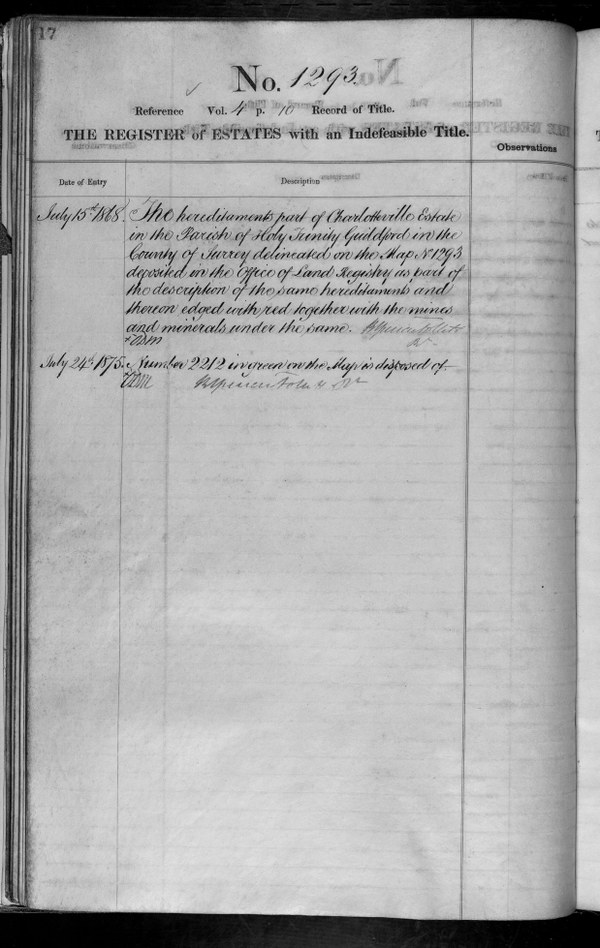 17
No. 1293.
Reference Vol. 4 p. 10 Record of Title.
THE REGISTER of ESTATES with an Indefeasible Title.
Observations
Date of Entry Description
July 15th 1868. The hereditaments part of Charlotteville Estate
in the Parish of Holy Trinity Guildford in the
County of Surrey delineated on the Map No 1293
deposited in the Office of Land Registry as part of
the description of the same hereditaments and
thereon edged with red together with the mines
and minerals under the same.
July 24th 1875. Number 2212 in green on the Map is disposed of